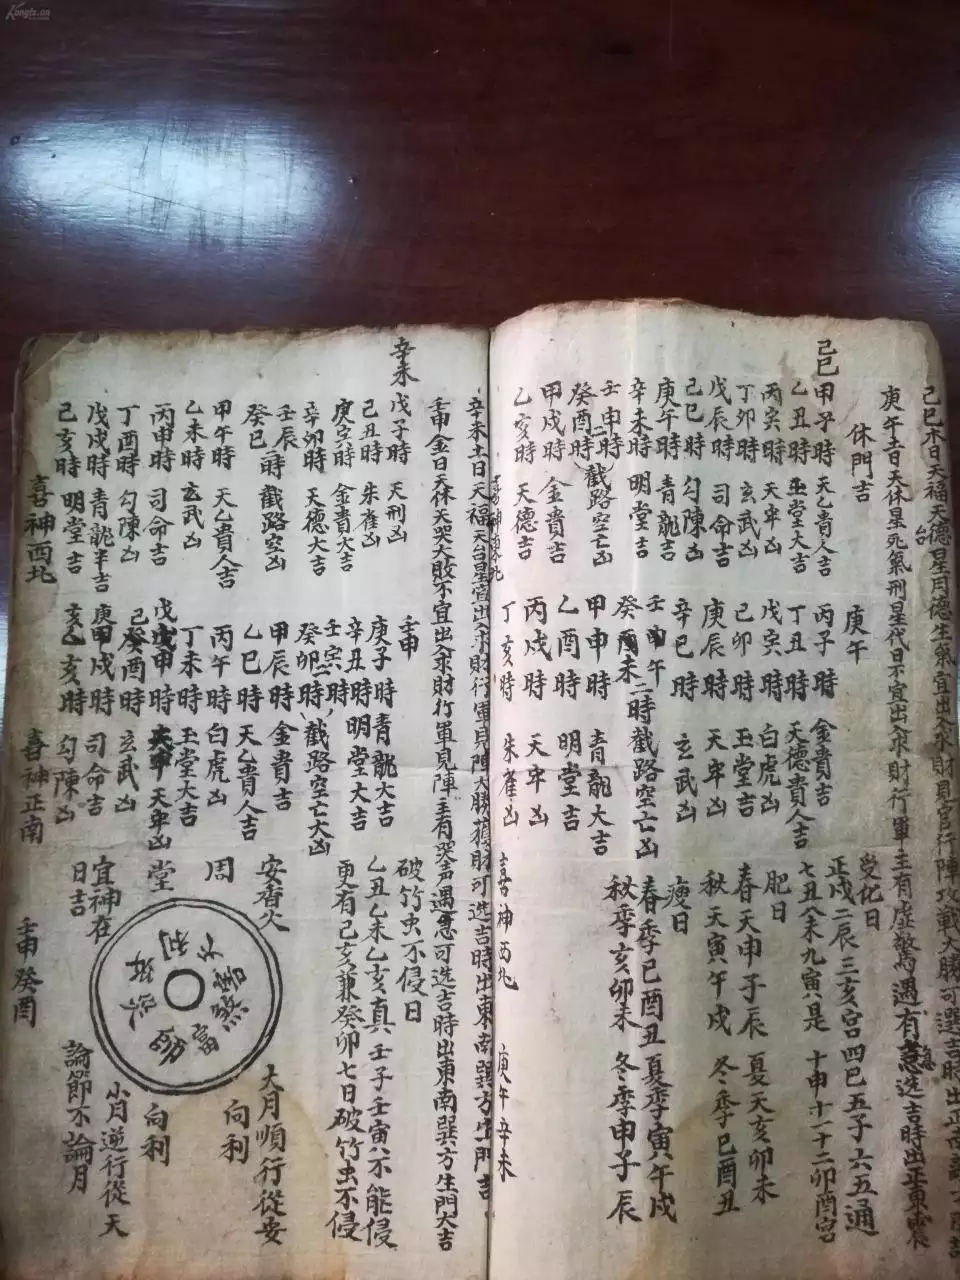 Kongfz.cn
己巳木日天福天德星月德生氣宜出入求財見官行陣攻戰大勝可選吉時出正西
庚午土日天休星死氣刑星代日不宜出入求財行軍主有虛驚遇有急選吉時出正東震
休門吉
己巳
甲子時 天乙貴人吉
乙丑時 玉堂大吉
丙寅時 天牢凶
丁卯時 玄武凶
戊辰時 司命吉
己巳時 勾陳凶
庚午時 青龍吉
辛未時 明堂吉
壬申時
癸酉時 二時截路空亡凶
甲戌時 金貴吉
乙亥時 天德吉
庚午
丙子時 金貴吉
丁丑時 天德貴人吉
戊寅時 白虎凶
己卯時 玉堂吉
庚辰時 天牢凶
辛巳時 玄武凶
壬午
癸未二時截路空亡凶
甲申時 青龍大吉
乙酉時 明堂吉
丙戌時 天牢凶
丁亥時 朱雀凶
喜神西北
受化日
正戌二辰三亥宮四巳五子六五通
七丑八未九寅是十申十一十二卯酉宮
肥日
春天申子辰 夏天亥卯未
秋天寅午戌 冬季巳酉丑
瘦日
春季巳酉丑 夏季寅午戌
秋季亥卯未 冬季申子辰
庚午辛未
辛未土日天福天台星宜出入求財行軍見陣大勝獲財可選吉時出東南巽方生門吉
壬申金日天休天哭大敗不宜出入求財行軍見陣主有哭声遇急可选吉時出東南巽方生門大吉
辛未
戊子時 天刑凶
己丑時 朱雀凶
庚寅時 金貴大吉
辛卯時 天德大吉
壬辰
癸巳二時 截路空凶
甲午時 天乙貴人吉
乙未時 玄武凶
丙申時 司命吉
丁酉時 勾陳凶
戊戌時 青龍半吉
己亥時 明堂吉
喜神西北
壬申
庚子時 青龍大吉
辛丑時 明堂大吉
壬寅
癸卯二時 截路空亡大凶
甲辰時 金貴吉
乙巳時 天乙貴人吉
丙午時 白虎凶
丁未時 玉堂大吉
戊申時 天牢凶
己酉時 玄武凶
庚戌時 司命吉
辛亥時 勾陳凶
喜神正南
破竹虫不侵日
乙丑乙未乙亥真壬子壬寅不能侵
更有己亥兼癸卯七日破竹虫不侵
安香火
周
堂
宜神在
日吉
大月順行從安
向利
向利
小月逆行從天
論節不論月
壬申癸酉